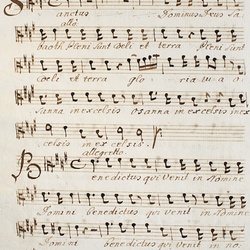 Sanctus Dominus Deus Sa
baoth Pleni sunt Coeli et terra Pleni sunt
Coeli et terra glo ria tu a o
sanna in excelsis osanna in excelsis in ex
celsis in ex celsis.
allegretto
Benedictus qui venit in Nomine
Domini benedictus qui venit in no
Domini benedictus qui venit in no